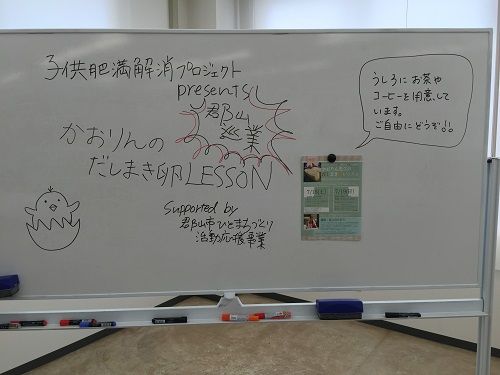 子供肥満解消プロジェクト
presents!
郡山
授業
かおりんの
だしまき卵LESSON
Supported by
郡山市ひとまちづくり
活動応援事業
うしろに お茶や
コーヒーを用意して
います。
ご自由にどうぞ!!
7/15(土)